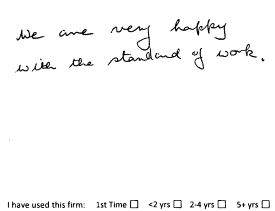 We are very happy
with the standard of work.
I have used this firm: 1st Time ☐ <2 yrs ☐ 2-4 yrs ☐ 5+ yrs ☐